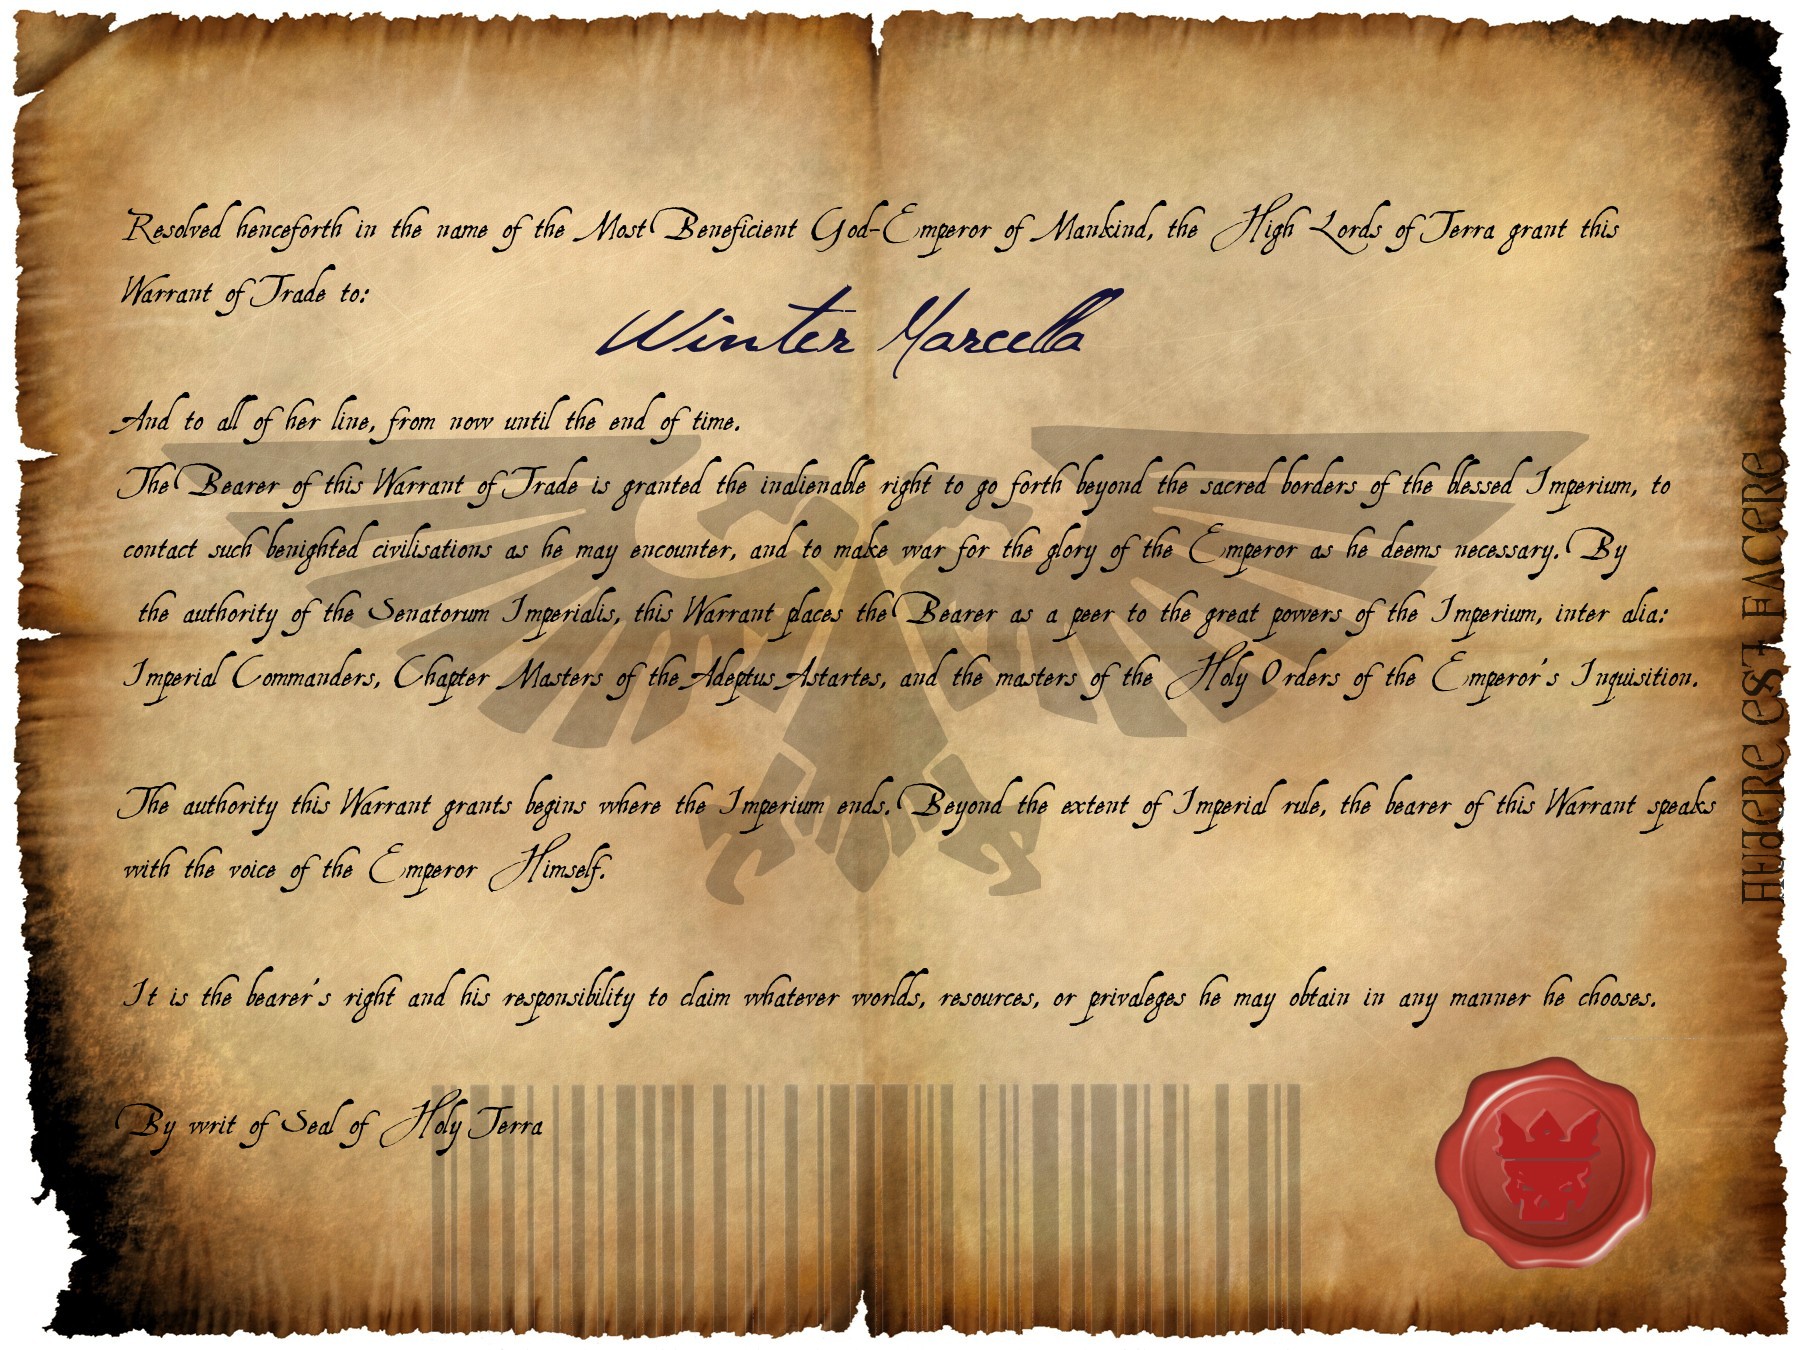 Resolved henceforth in the name of the Most Beneficient God-Emperor of Mankind, the High Lords of Terra grant this
Warrant of Trade to:
Winter Marcella
And to all of her line, from now until the end of time.
The Bearer of this Warrant of Trade is granted the inalienable right to go forth beyond the sacred borders of the blessed Imperium, to
contact such benighted civilisations as he may encounter, and to make war for the glory of the Emperor as he deems necessary. By
the authority of the Senatorum Imperialis, this Warrant places the Bearer as a peer to the great powers of the Imperium, inter alia:
Imperial Commanders, Chapter Masters of the Adeptus Astartes, and the masters of the Holy Orders of the Emperor's Inquisition.
The authority this Warrant grants begins where the Imperium ends. Beyond the extent of Imperial rule, the bearer of this Warrant speaks
with the voice of the Emperor Himself.
It is the bearer's right and his responsibility to claim whatever worlds, resources, or privaleges he may obtain in any manner he chooses.
By writ of Seal of Holy Terra
Audere est Facere